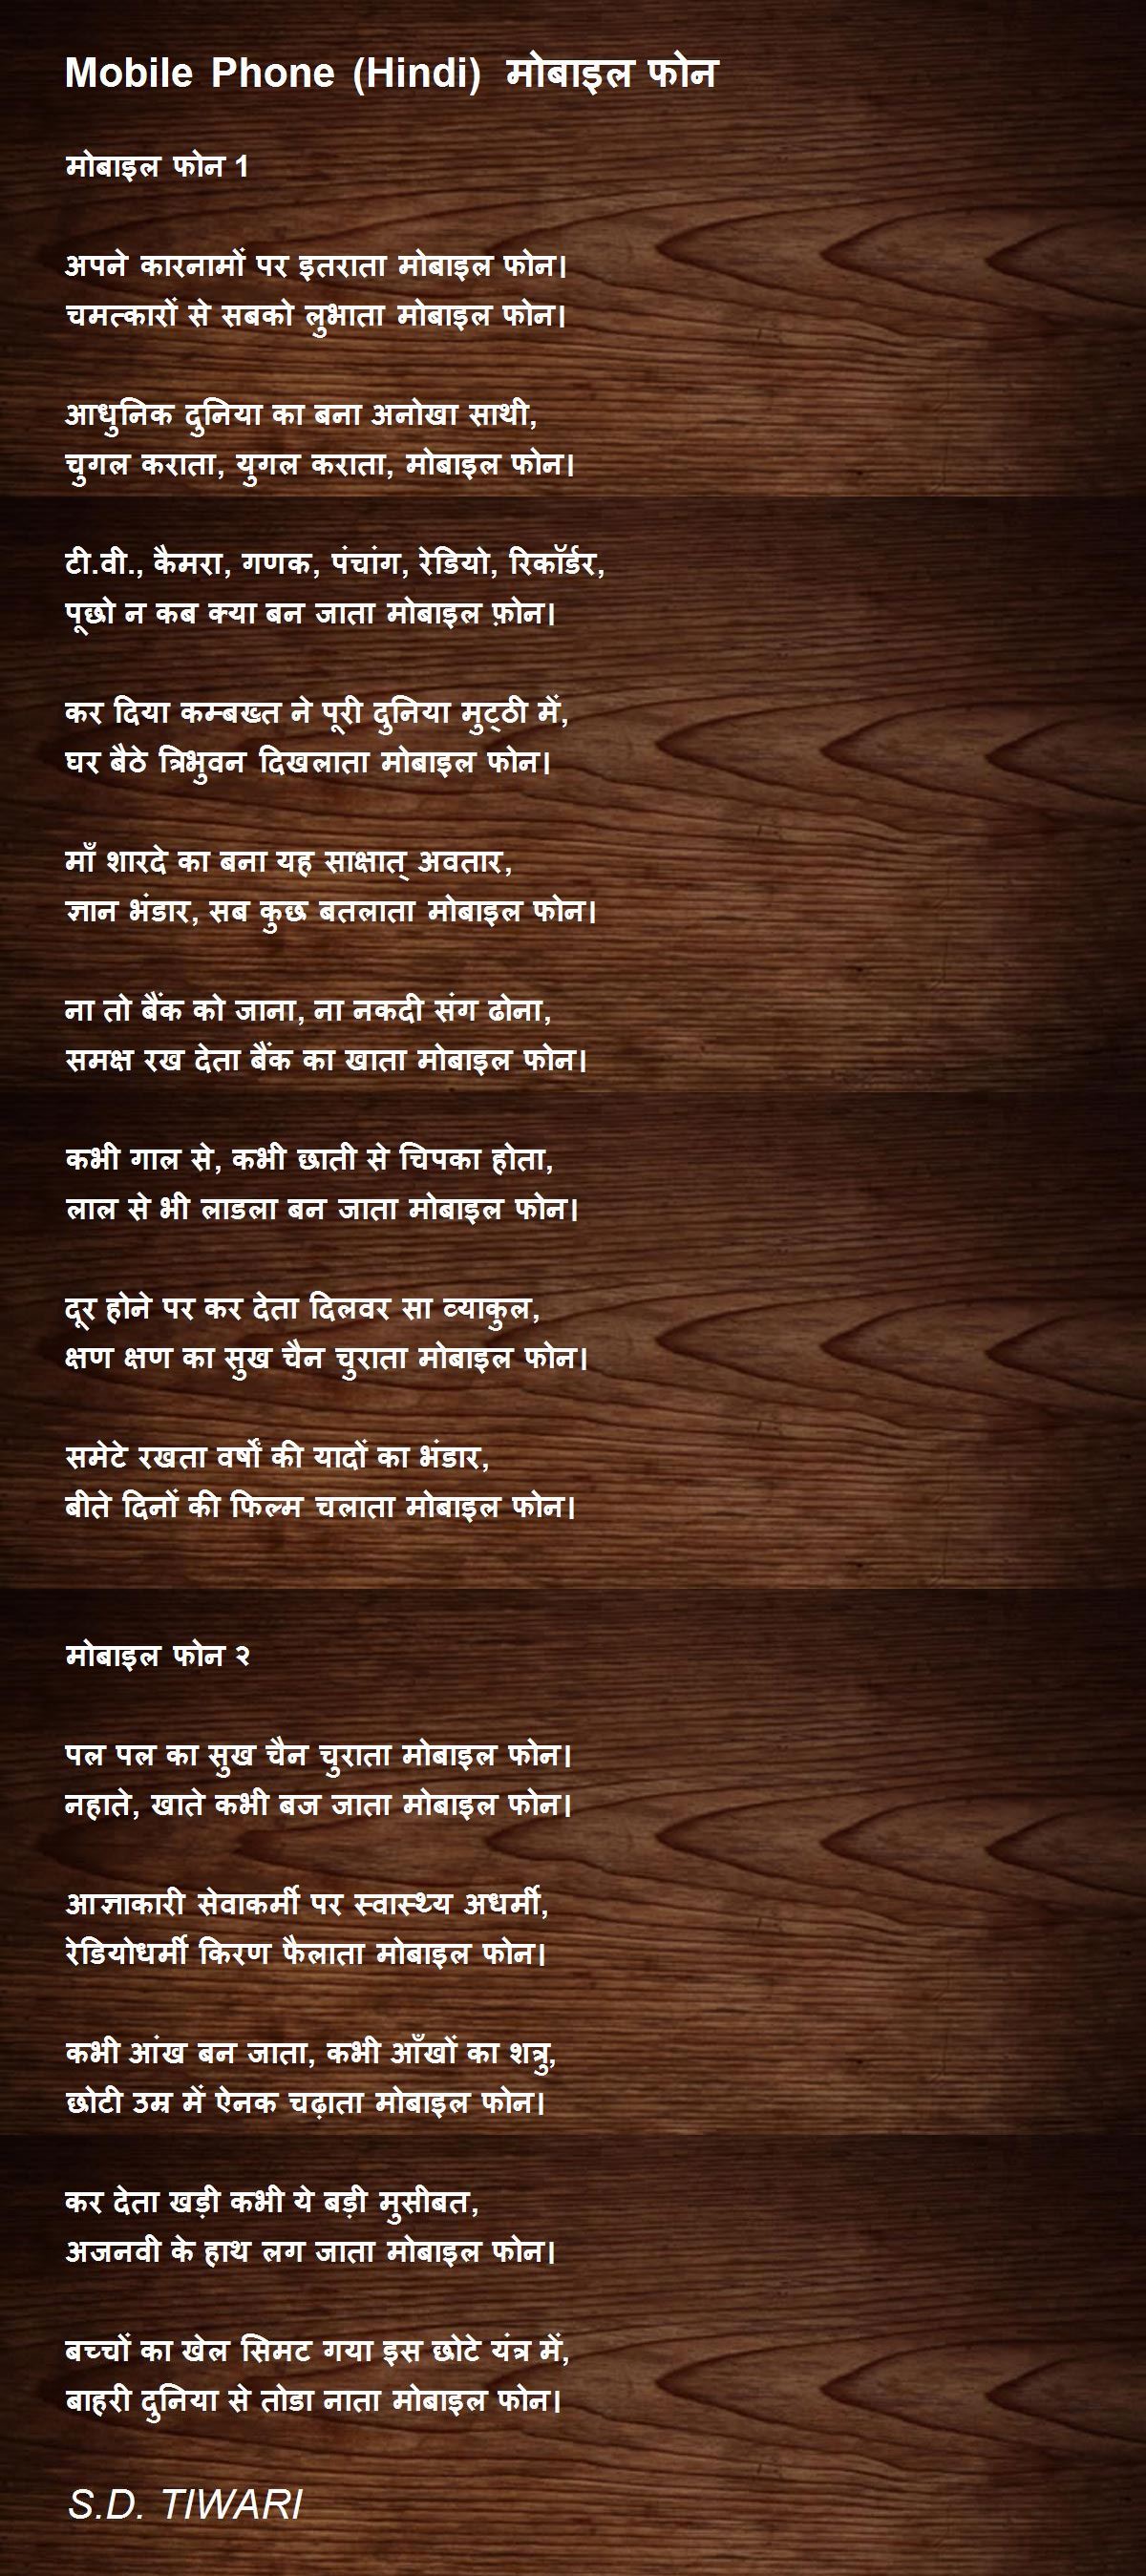 Mobile Phone (Hindi) मोबाइल फोन
मोबाइल फोन 1
अपने कारनामों पर इतराता मोबाइल फोन।
चमत्कारों से सबको लुभाता मोबाइल फोन।
आधुनिक दुनिया का बना अनोखा साथी,
चुगल कराता, युगल कराता, मोबाइल फोन।
टी.वी., कैमरा, गणक, पंचांग, रेडियो, रिकॉर्डर,
पूछो न कब क्या बन जाता मोबाइल फ़ोन।
कर दिया कम्बख्त ने पूरी दुनिया मुट्ठी में,
घर बैठे त्रिभुवन दिखलाता मोबाइल फोन।
माँ शारदे का बना यह साक्षात् अवतार,
ज्ञान भंडार, सब कुछ बतलाता मोबाइल फोन।
ना तो बैंक को जाना, ना नकदी संग ढोना,
समक्ष रख देता बैंक का खाता मोबाइल फोन।
कभी गाल से, कभी छाती से चिपका होता,
लाल से भी लाडला बन जाता मोबाइल फोन।
दूर होने पर कर देता दिलवर सा व्याकुल,
क्षण क्षण का सुख चैन चुराता मोबाइल फोन।
समेटे रखता वर्षों की यादों का भंडार,
बीते दिनों की फिल्म चलाता मोबाइल फोन।
मोबाइल फोन २
पल पल का सुख चैन चुराता मोबाइल फोन।
नहाते, खाते कभी बज जाता मोबाइल फोन।
आज्ञाकारी सेवाकर्मी पर स्वास्थ्य अधर्मी,
रेडियोधर्मी किरण फैलाता मोबाइल फोन।
कभी आंख बन जाता, कभी आँखों का शत्रु,
छोटी उम्र में ऐनक चढ़ाता मोबाइल फोन।
कर देता खड़ी कभी ये बड़ी मुसीबत,
अजनवी के हाथ लग जाता मोबाइल फोन।
बच्चों का खेल सिमट गया इस छोटे यंत्र में,
बाहरी दुनिया से तोडा नाता मोबाइल फोन।
S.D. TIWARI